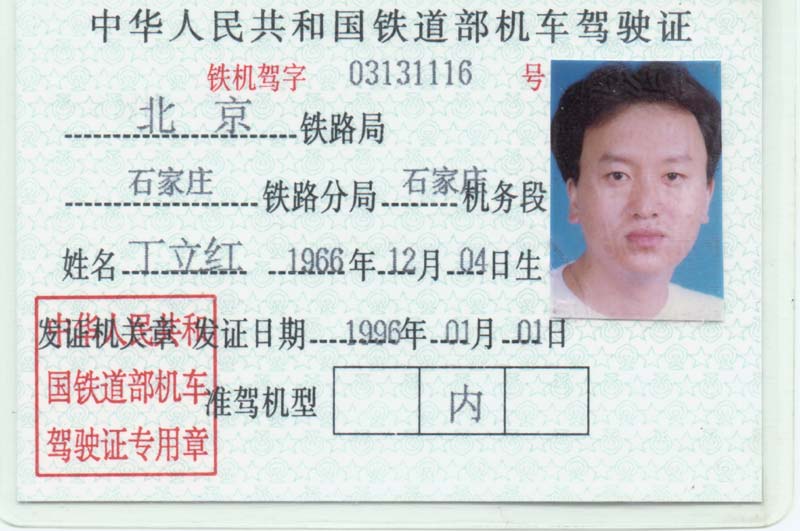 中华人民共和国铁道部机车驾驶证
铁机驾字 03131116 号
北京铁路局
石家庄铁路分局石家庄机务段
姓名丁立红 1966年12月04日生
发证机关章 发证日期1996年01月01日
准驾机型 内
中华人民共和
国铁道部机车
驾驶证专用章